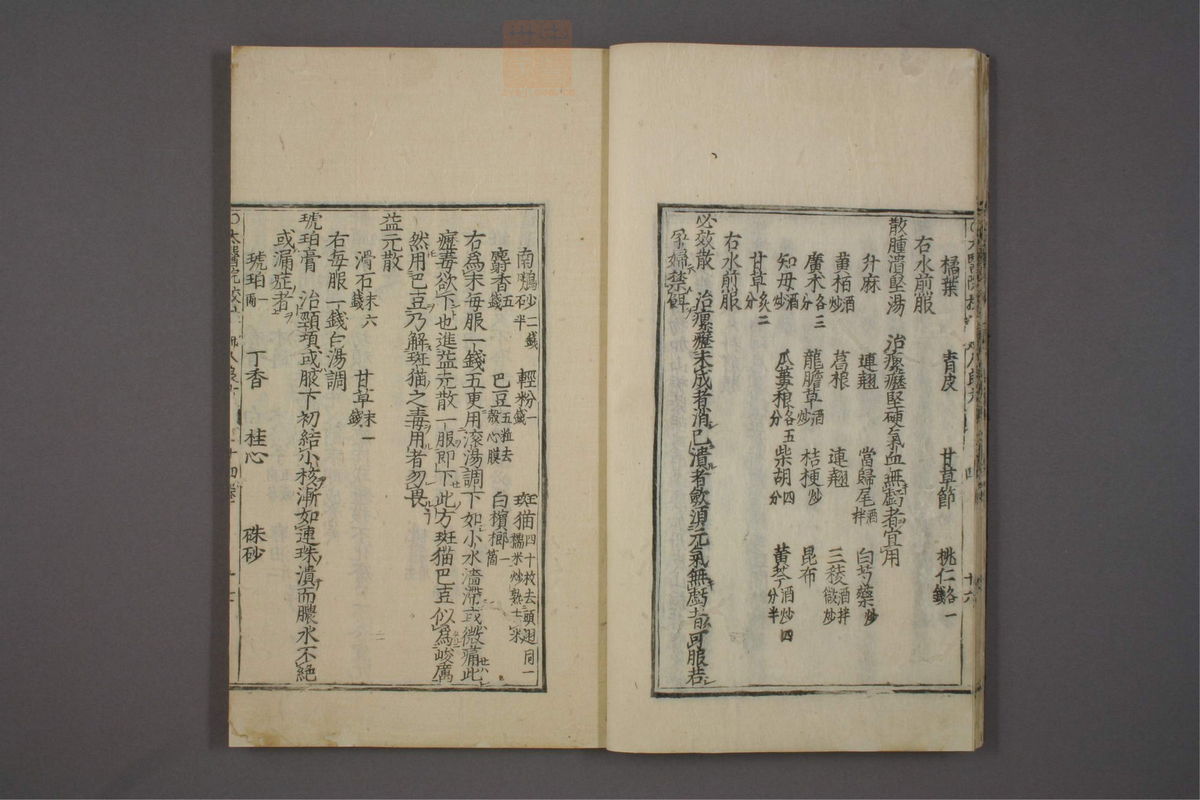 橘葉 青皮 甘草節 桃仁各一錢
右水煎服
散腫潰堅湯 治瘰癧堅硬氣血無虧者宜用
升麻 連翹 當歸尾酒拌 白芍藥炒
黄栢酒炒 葛根 連翹 三稜酒拌微炒
廣朮各三分 龍膽草酒炒 桔梗炒 昆布
知母酒炒 瓜蔞根各五分 柴胡四分 黄芩酒炒四分半
甘草炙二分
右水煎服
必效散 治瘰癧未成者消已潰者歛須元氣無虧者可服若
孕婦禁餌
南鵬砂二錢半 輕粉一錢 斑猫四十枚去頭翅同一糯米炒熟七
麝香五錢 巴豆五粒去殼心膜 白檳榔一箇
右為末每服一錢五更用滚湯調下如小水濇滯或微痛此
癧毒欲下也進益元散一服即下此方斑猫巴豆似為峻厲
然用巴豆乃解斑猫之毒用者勿畏
益元散
滑石末六錢 甘草末一錢
右每服一錢白湯調
琥珀膏 治頸項或腋下初結小核漸如連珠潰而膿水不絶
或漏症者
琥珀一兩 丁香 桂心 硃砂